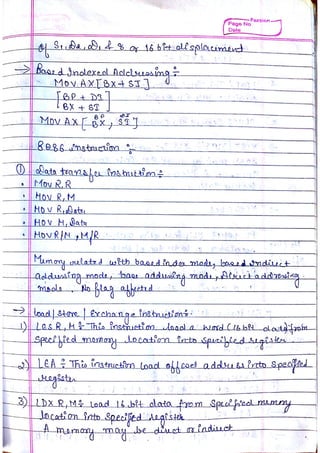 Page No
Date
of SI, DI, & 8 or 16 bit displacement
→ Based Indexed Addressing ÷
MOV AX [BX + SI]
[BP + DI]
[BX + SI]
MOV AX [BP BX, DI SI]
8086 instruction ÷
① Data transfer instruction ÷
• MOV R, R
• MOV R, M
• MOV R, Data
• MOV M, Data
• MOV R/M, M/R
Memory related with based index mode, based indirect
addressing mode, base addressing mode, direct addressing
mode. No flag affected
→ load / store / Exchange instruction ÷
1) LDS R, M ÷ This instruction load a word (16 bit data) from
specified memory location into specified register.
2) LEA ÷ This instruction load offset address into specified
register
3) LDX R, M ÷ load 16 bit data from specified memory
location into specified register
A memory may be direct or indirect